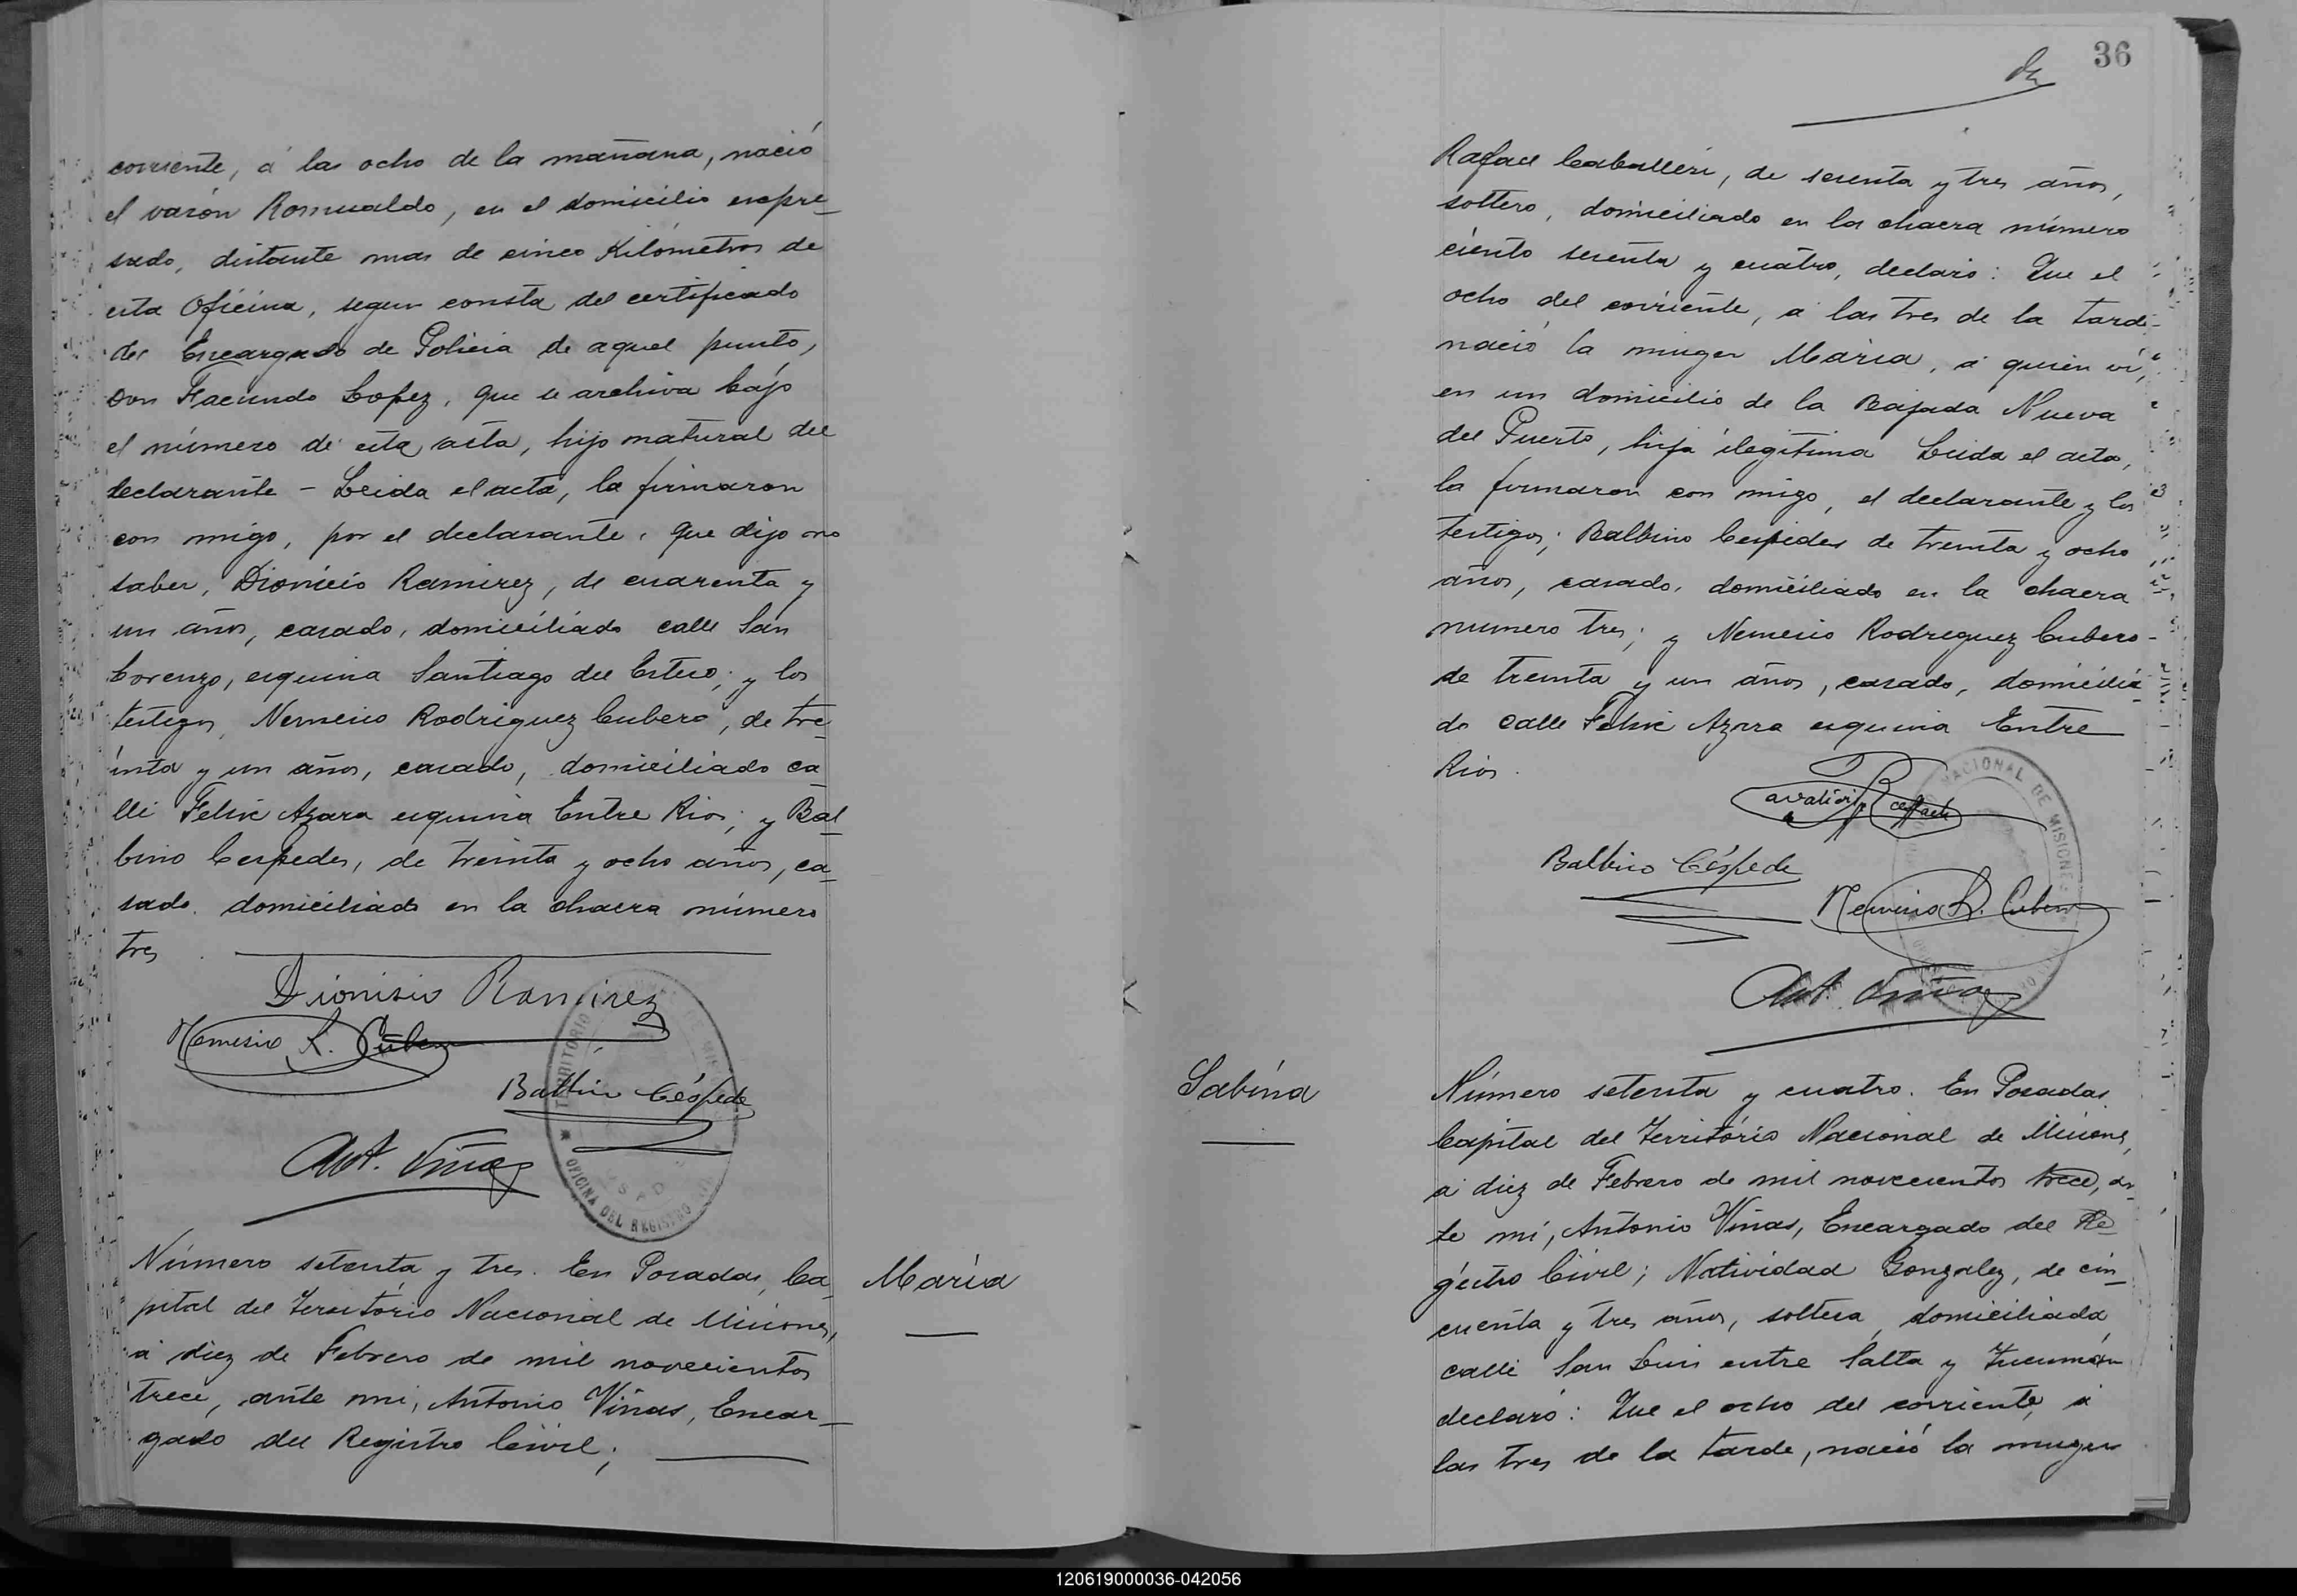 corriente, á las ocho de la mañana, nació
el varón Romualdo, en el domicilio expre_
sado, distante mas de cinco Kilómetros de
esta Oficina, segun consta del certificado
del Encargado de Policia de aquel punto,
Don Facundo Lopez, que se archiva bájo
el número de esta acta, hijo natural del
declarante - Leida el acta, la firmaron
con migo, por el declarante, que dijo no
saber, Dionicio Ramirez, de cuarenta y
un años, casado, domiciliado calle San
Lorenzo, esquina Santiago del Estero; y los
testigos, Nemesio Rodriguez Cubero, de tre_
inta y un años, casado, domiciliado ca_
lle Felix Azara esquina Entre Rios; y Bal_
bino Cespedes, de treinta y ocho años, ca_
sado, domiciliado en la chacra número
tres
Dionisio Ramirez
Nemesio R. Cubero
Balbino Céspede
Ant. Viñas
TERRITORIO
OFICINA DEL REGISTRO
Número setenta y tres. En Posadas, Ca_
pital del Territorio Nacional de Misiones,
á diez de Febrero de mil novecientos
trece, ante mi, Antonio Viñas, Encar_
gado del Registro Civil;
María
36
Rafael Caballeri, de sesenta y tres años,
soltero, domiciliado en la chacra número
ciento sesenta y cuatro, declaró: Que el
ocho del corriente, á las tres de la tarde
nació la muger María, á quien ví,
en un domicilio de la Bajada Nueva
del Puerto, hija ilegitima Leida el acta,
la firmaron con migo, el declarante y los
testigos; Balbino Cespides de treinta y ocho
años, casado, domiciliado en la chacra
numero tres; y Nemesio Rodriguez Cubero
de treinta y un años, casado, domicilia
do calle Felix Azara esquina Entre
Rios.
NACIONAL DE MISIONES
Balbino Céspede
Nemesio R. Cubero
Ant. Viñas
Sabína
Número setenta y cuatro. En Posadas
Capital del Territorio Nacional de Misiones,
á diez de Febrero de mil novecientos trece, an_
te mi, Antonio Viñas, Encargado del Re_
gistro Civil; Natividad Gonzalez, de cin_
cuenta y tres años, soltera, domiciliada
calle San Luis entre Salta y Tucumán
declaró: Que el ocho del corriente, á
las tres de la tarde, nació la muger
120619000036-042056